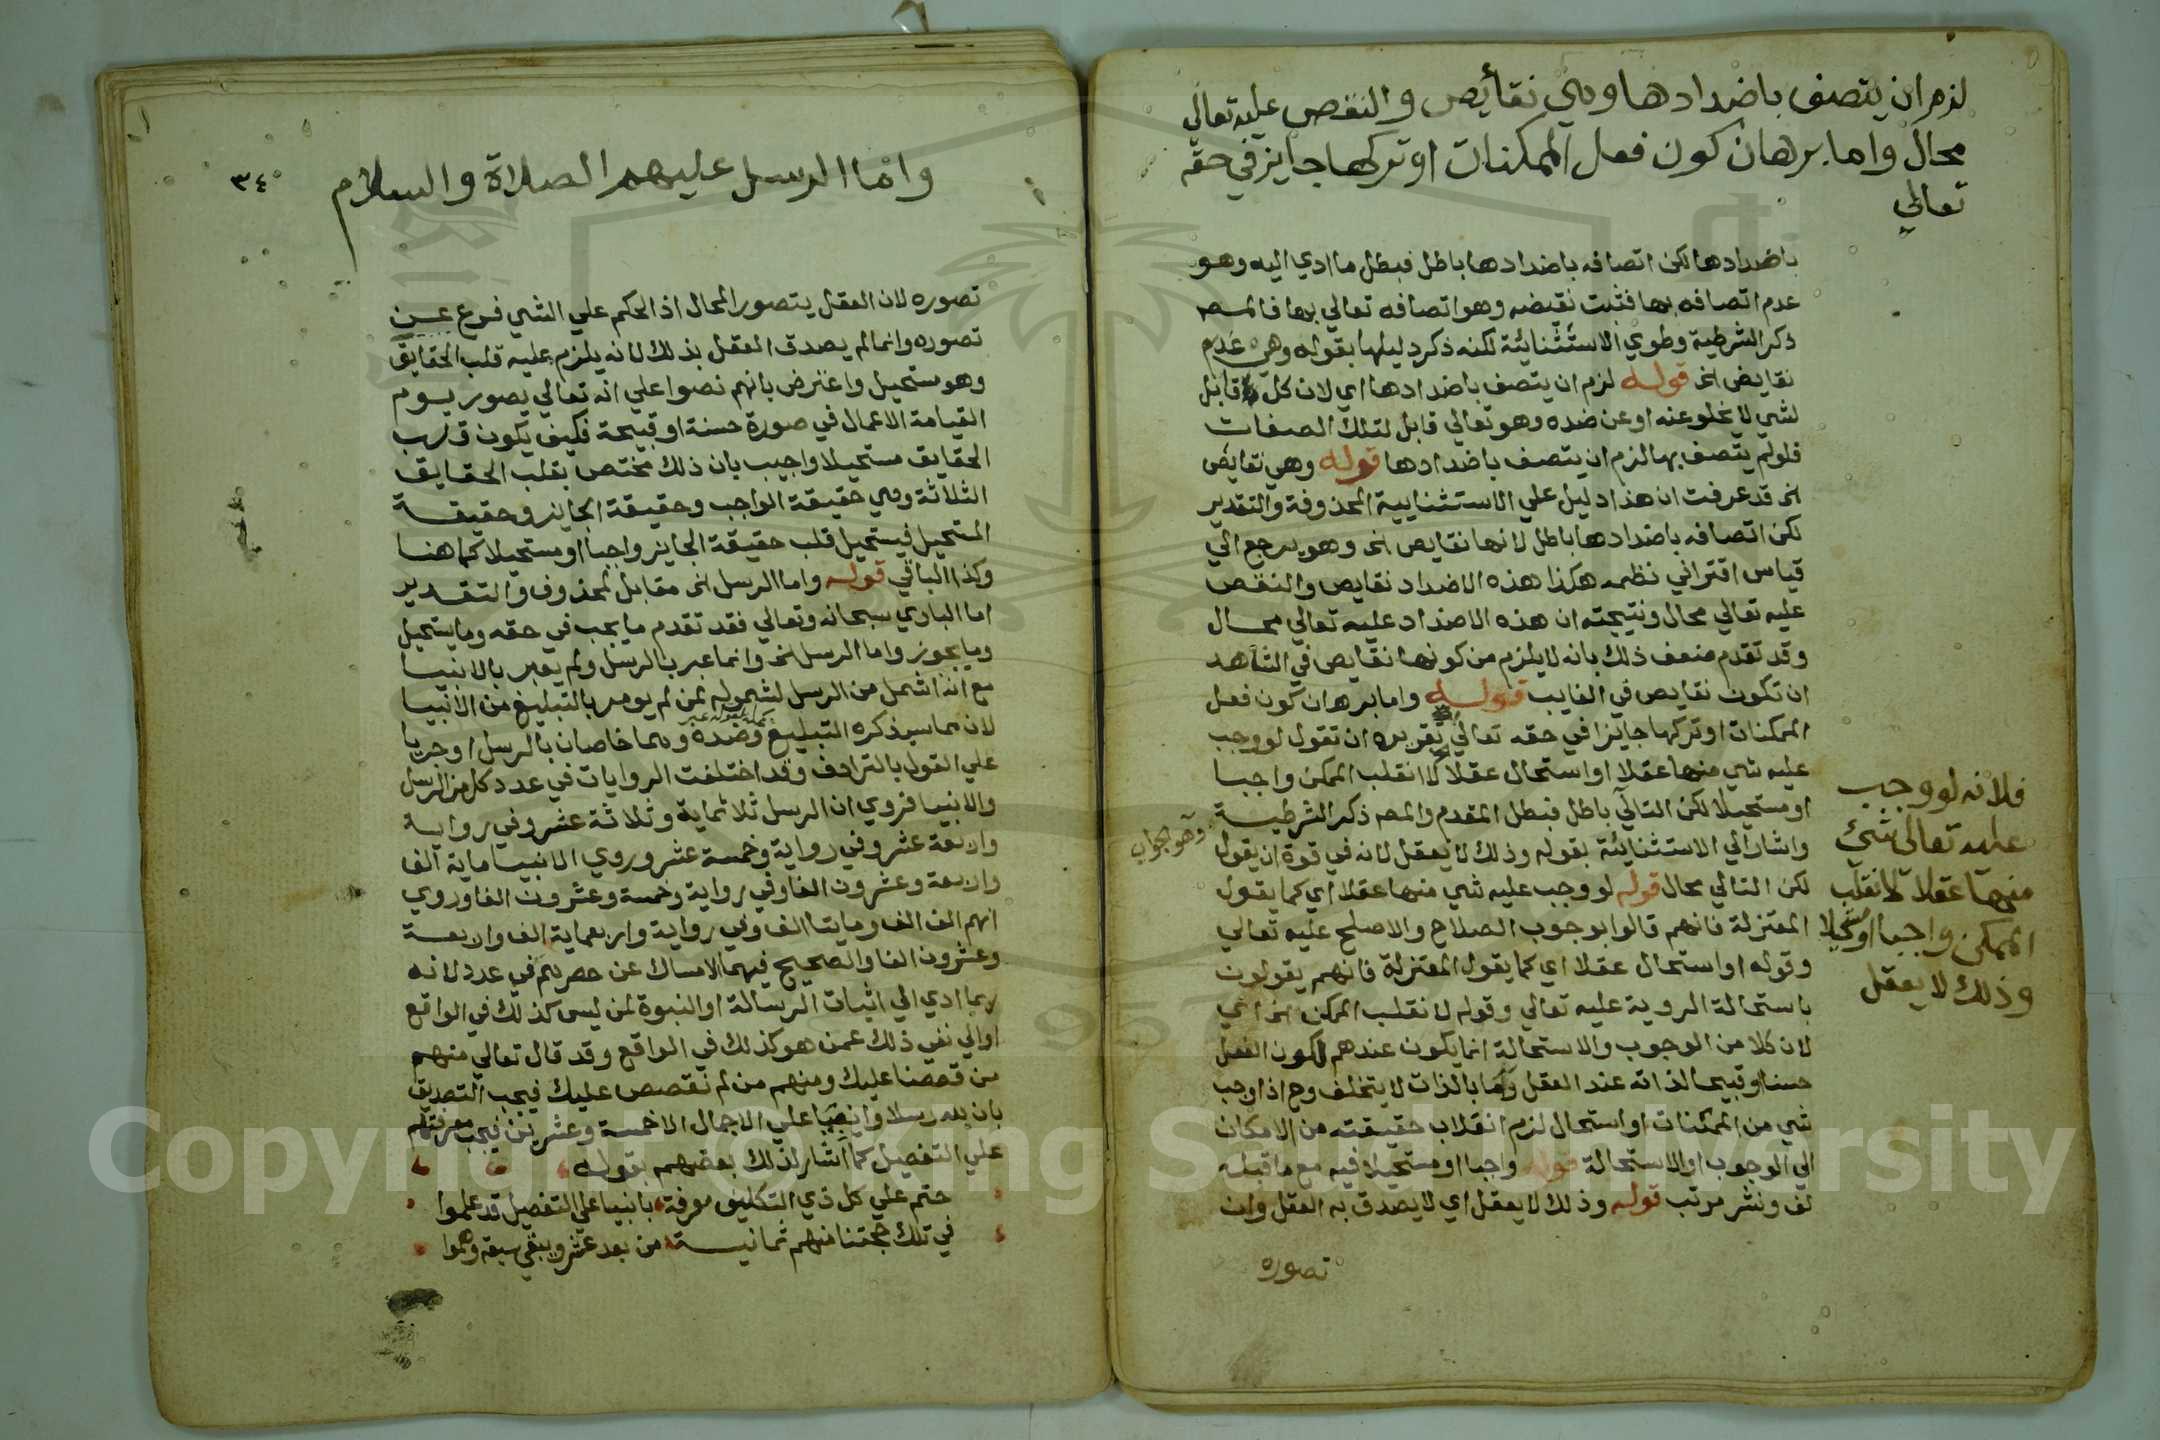 لزم ان يتصف باضدادها وهي نقأيص والنقص عليه تعالي
محال واما برهان كون فعل الممكنات او تركها جايز في حقه
تعالي
باضدادها لكن اتصافه باضدادها باطل فبطل ما ادي اليه وهو
عدم اتصافه بها فثبت نقيضه وهو اتصافه تعالي بها فالمصـ
ذكر الشرطية وطوي الاستثنائية لكنه ذكر دليلها بقوله وهي عدم
نقايص الخ قوله لزم ان يتصف باضدادها اي لان كل قابل
لشي لا يخلو عنه او عن ضده وهو تعالي قابل لتلك الصفات
فلو لم يتصف بها لزم ان يتصف باضدادها قوله وهي نقايص
الخ قد عرفت ان هذا دليل علي الاستثنايية المحذوفة والتقدير
لكن اتصافه باضدادها باطل لانها نقايص الخ وهو يرجع الي
قياس اقتراني نظمه هكذا هذه الاضداد نقايص والنقص
عليه تعالي محال ونتيجته ان هذه الاضداد عليه تعالي محال
وقد تقدم ضعف ذلك بانه لا يلزم من كونها نقايص في الشاهد
ان تكون نقايص في الغايب قوله واما برهان كون فعل
الممكنات او تركها جايزا في حقه تعالي تقريره ان تقول لو وجب
عليه شي منها عقلا او استحال عقلا لا انقلب الممكن واجبا
او مستحيلا لكن التالي باطل فبطل المقدم والمصـ ذكر الشرطية
وهو الجواب
واشار الي الاستثنائية بقوله وذلك لا يعقل لانه في قوة ان يقول
لكن التالي محال قوله لو وجب عليه شي منها عقلا اي كما يقول
المعتزلة فانهم قالوا بوجوب الصلاح والاصلح عليه تعالي
وقوله او استحال عقلا اي كما يقول المعتزلة فانهم يقولون
باستحالة الروية عليه تعالي وقوله لانقلب الممكن الخ اي
لان كلا من الوجوب والاستحالة انما يكون عندهم لكون الفعل
حسنا او قبيحا لذاته عند العقل وما بالذات لا يتخلف وح اذا وجب
شي من الممكنات او استحال لزم انقلاب حقيقته من الامكان
الي الوجوب او الاستحالة قوله واجبا او مستحيلا فيه مع ما قبله
لف ونشر مرتب قوله وذلك لا يعقل اي لا يصدق به العقل وان
تصوره
فلانه لو وجب
عليه تعالى شئ
منها عقلا لانقلب
الممكن واجبا او مستحيلا
وذلك لا يعقل
واما الرسل عليهم الصلاة والسلام
٣٤
تصوره لان العقل يتصور المحال اذ الحكم علي الشي فرع عن
تصوره وانما لم يصدق العقل بذلك لانه يلزم عليه قلب الحقايق
وهو مستحيل واعترض بانهم نصوا علي انه تعالي يصور يوم
القيامة الاعمال في صورة حسنة او قبيحة فكيف يكون قلب
الحقايق مستحيلا واجيب بان ذلك مختص بقلب الحقايق
الثلاثة وهي حقيقة الواجب وحقيقة الجايز وحقيقة
المستحيل فيستحيل قلب حقيقة الجايز واجبا او مستحيلا كما هنا
وكذا الباقي قوله واما الرسل الخ مقابل لمحذوف والتقدير
اما الباري سبحانه وتعالي فقد تقدم ما يجب في حقه وما يستحيل
وما يجوز واما الرسل الخ وانما عبر بالرسل ولم يعبر بالانبيا
مع انه اشمل من الرسل لشموله لمن لم يومر بالتبليغ من الانبيا
لان مما سيذكره التبليغ وضده وهما خاصان بالرسل او جريا
علي القول بالترادف وقد اختلفت الروايات في عدد كل من الرسل
والانبيا فروي ان الرسل ثلاثماية وثلاثة عشر وفي رواية
واربعة عشر وفي رواية وخمسة عشر وروي الانبيا ماية الف
واربعة وعشرون الفا وفي رواية وخمسة وعشرون الفا وروي
انهم الف الف ومايتا الف وفي رواية واربعماية الف واربعة
وعشرون الفا والصحيح فيهما الامساك عن حصرهم في عدد لانه
ربما ادي الي اثبات الرسالة او النبوة لمن ليس كذلك في الواقع
او الي نفي ذلك عمن هو كذلك في الواقع وقد قال تعالي منهم
من قصصنا عليك ومنهم من لم نقصص عليك فيجب التصديق
بان لله رسلا وانبيا علي الاجمال الا خمسة وعشرين فيجب معرفتهم
علي التفصيل كما اشار لذلك بعضهم بقوله
حتم علي كل ذي التكليف معرفة بانبيا علي التفصيل قد علموا
في تلك حجتنا منهم ثمانية من بعد عشر ويبقي سبعة وهموا
Copyright © King Saud University